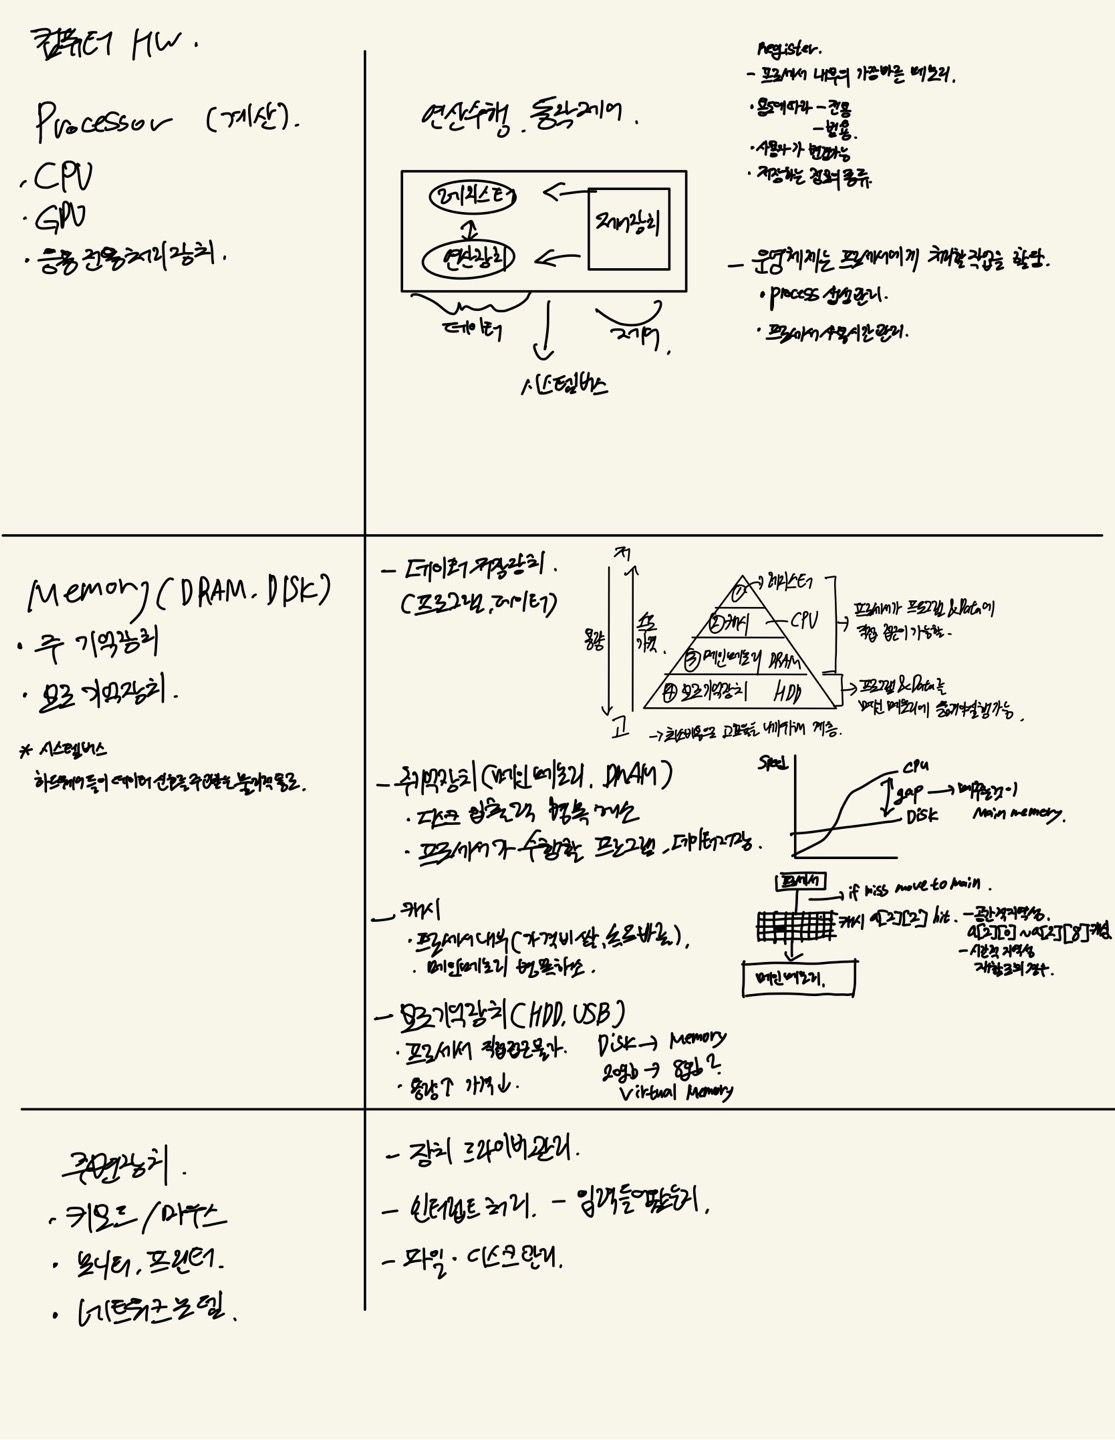 컴퓨터 HW.
Processor (계산).
· CPU
· GPU
· 응용 전용처리장치.
연산수행, 동작제어.
레지스터
연산장치
제어장치
데이터
제어.
시스템버스
Register.
- 프로세서 내부의 가장빠른 메모리.
· 용도에따라 - 전용
- 범용.
· 사용자가 변경가능
· 저장하는 정보의 종류.
- 운영체제는 프로세서에게 처리할작업을 할당.
· process 생성관리.
· 프로세서사용시간관리.
Memory (DRAM, DISK)
· 주 기억장치
· 보조 기억장치.
* 시스템버스
하드웨어들이 데이터 신호를 주고받는 물리적 통로.
- 데이터 저장장치.
(프로그램, 데이터)
저
용량
속도
가격.
고
① → 레지스터
② 캐시 - CPU
③ 메인메모리 DRAM
④ 보조기억장치 HDD
→ 프로세서가 프로그램 & Data에
직접 접근이 가능함.
→ 프로그램 & Data를
메인 메모리에 옮겨야 실행가능.
→ 최소비용으로 고효율을 내기위해 계층.
- 주기억장치 (메인메모리, DRAM)
· 디스크 입출력 병목 개선
· 프로세서가 수행할 프로그램, 데이터저장.
Speed
CPU
gap → 메꾸는것이
Disk
Main memory.
- 캐시
· 프로세서내부 (가격비쌈, 속도빠름).
· 메인메모리 병목해소.
프로세서
→ if miss move to main.
캐시 a[2][2] hit.
- 공간적지역성.
a[2][0] ~ a[2][8] 캐싱
- 시간적 지역성
메인메모리.
- 보조기억장치 (HDD, USB)
· 프로세서 직접접근불가.
· 용량↑ 가격↓.
Disk → Memory
20gb → 8gb?
Virtual Memory
주변장치.
· 키보드 / 마우스
· 모니터, 프린터.
· 네트워크모뎀.
- 장치 드라이버관리.
- 인터럽트 처리.
- 파일 · 디스크관리.